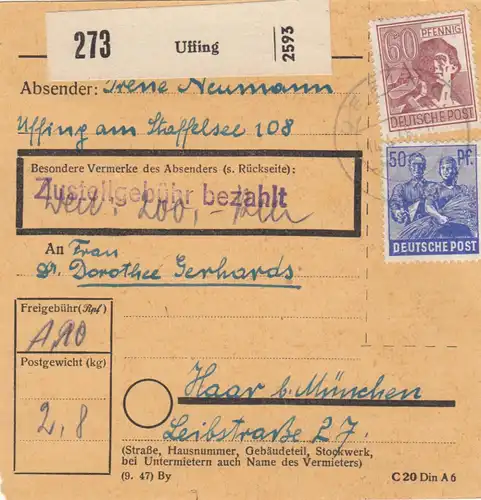 273
Uffing
2593
60
PFENNIG
DEUTSCHE POST
Absender: Irene Neumann
Uffing am Staffelsee 108
50 Pf.
DEUTSCHE POST
Besondere Vermerke des Absenders (s. Rückseite):
Zustellgebühr bezahlt
Wert: 200,-
An Frau
Dr. Dorothee Gerhards
Freigebühr (Rpf)
Postgewicht (kg)
2,8
Haar b. München
Leibstraße 27.
(Straße, Hausnummer, Gebäudeteil, Stockwerk,
bei Untermietern auch Name des Vermieters)
(9. 47) By
C 20 Din A 6